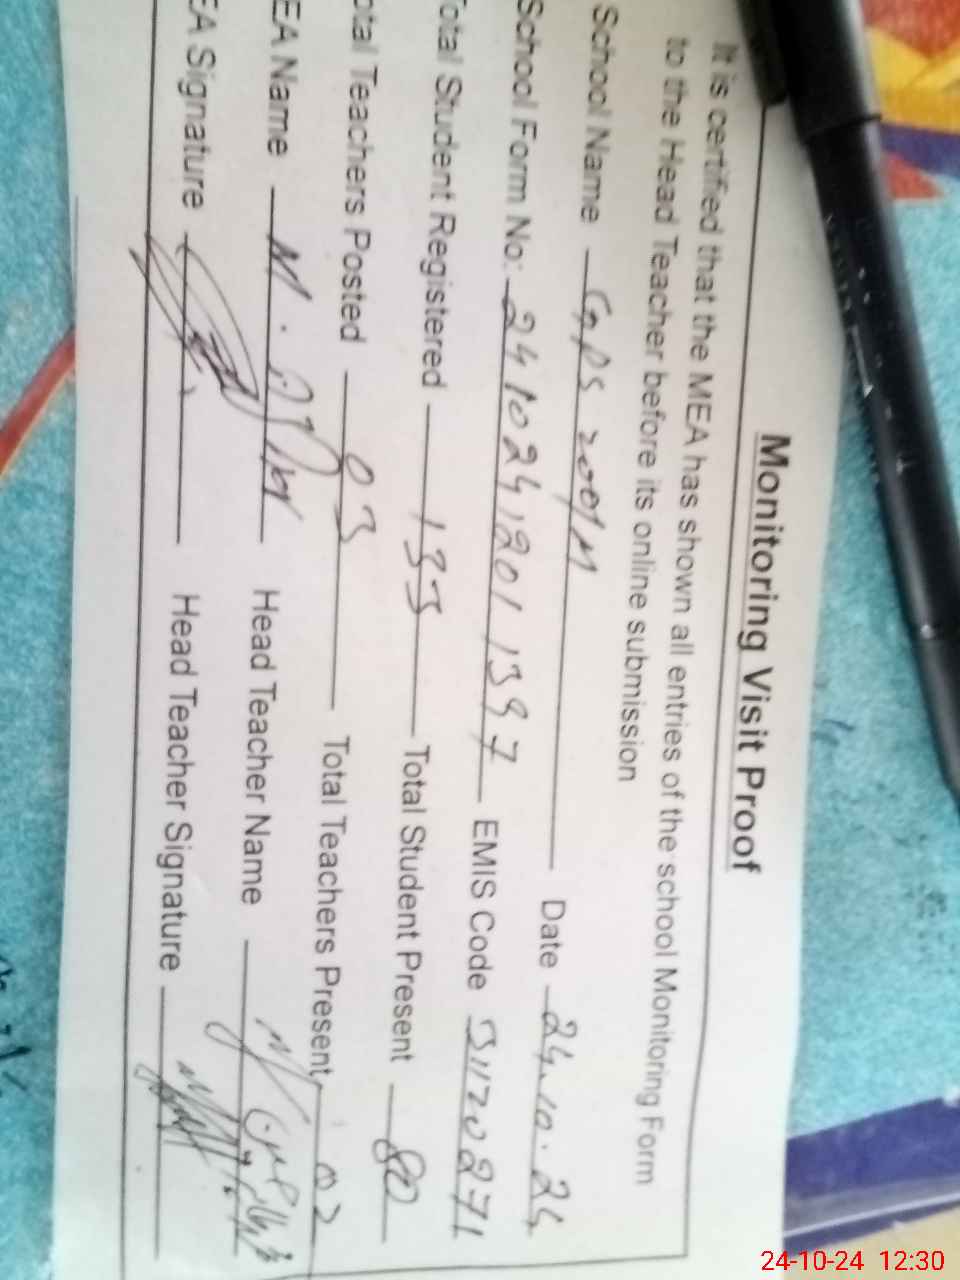 Monitoring Visit Proof
It is certified that the MEA has shown all entries of the school Monitoring Form
to the Head Teacher before its online submission
School Name GPS Date 24.10.24
School Form No: 241024120111397 EMIS Code 31120271
Total Student Registered 133 Total Student Present 80
otal Teachers Posted 03 Total Teachers Present 02
EA Name M. Head Teacher Name
EA Signature Head Teacher Signature
24-10-24 12:30